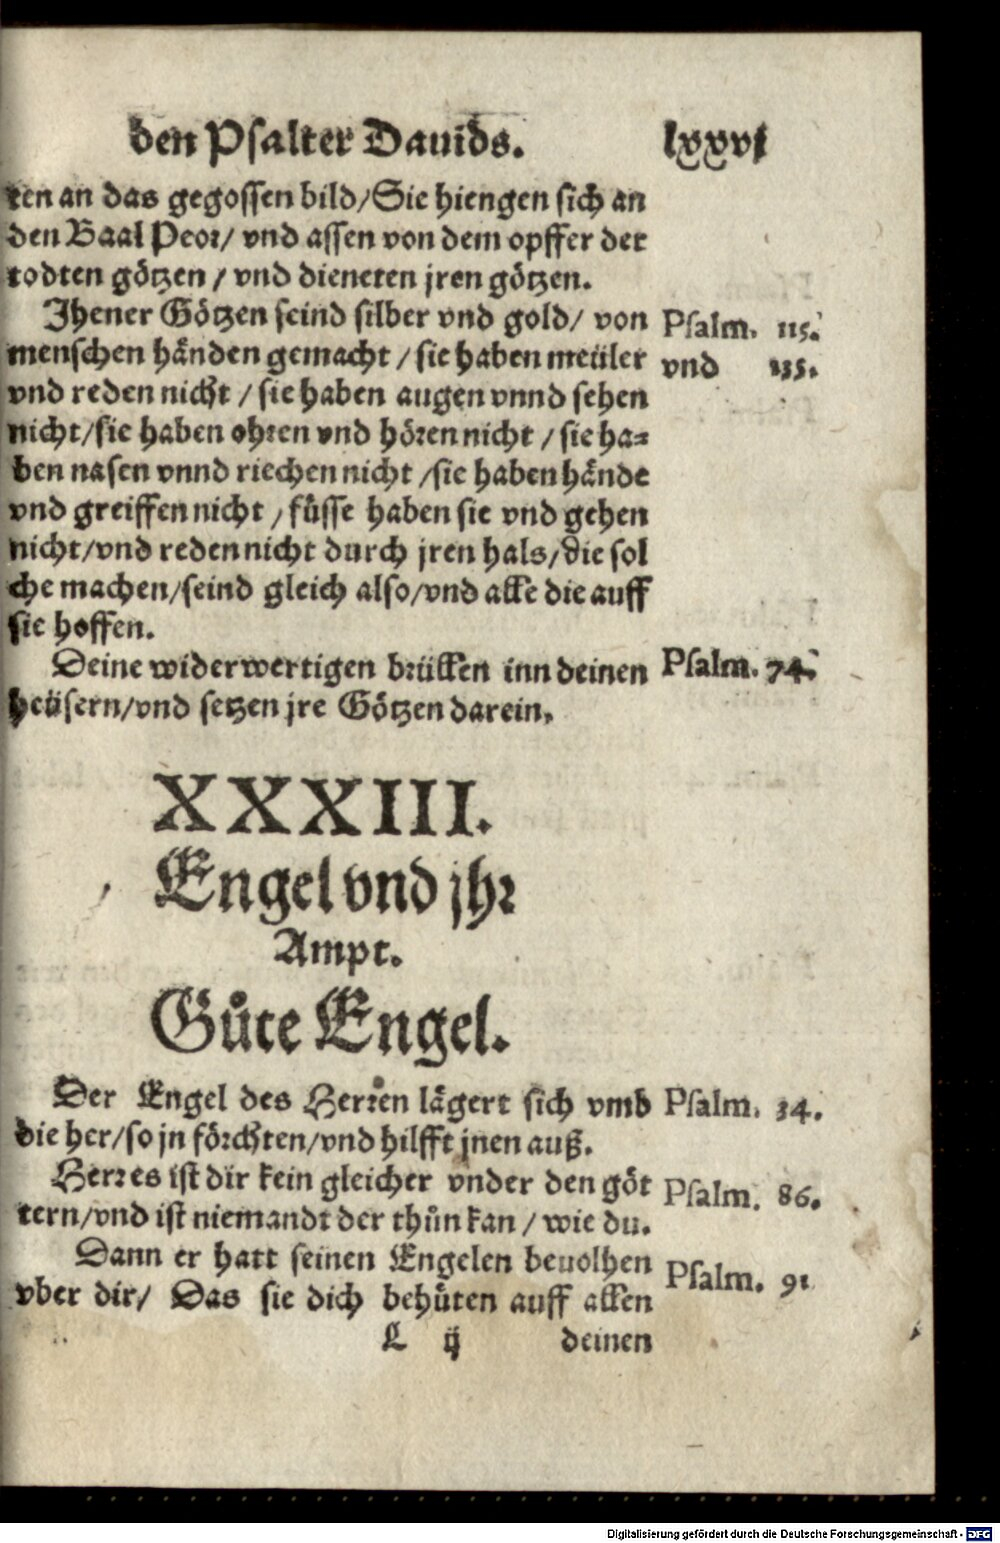 den Psalter Dauids. lxxvj
ten an das gegossen bild/Sie hiengen sich an
den Baal Peor/ vnd assen von dem opffer der
todten götzen / vnd dieneten jren götzen.
Jhener Götzen seind silber vnd gold/ von Psalm. 115.
menschen händen gemacht / sie haben meüler vnd 135.
vnd reden nicht / sie haben augen vnnd sehen
nicht/sie haben ohren vnd hören nicht / sie ha=
ben nasen vnnd riechen nicht /sie haben hände
vnd greiffen nicht / füsse haben sie vnd gehen
nicht/vnd reden nicht durch jren hals/die sol
che machen/seind gleich also/vnd alle die auff
sie hoffen.
Deine widerwertigen brüllen inn deinen Psalm. 74.
heüsern/vnd setzen jre Götzen darein.
XXXIII.
Engel vnd jhr
Ampt.
Gůte Engel.
Der Engel des Herren lägert sich vmb Psalm. 34.
die her/so jn förchten/vnd hilfft jnen auß.
Herr es ist dir kein gleicher vnder den göt Psalm. 86.
tern/vnd ist niemandt der thůn kan / wie du.
Dann er hatt seinen Engelen beuolhen Psalm. 91
vber dir/ Das sie dich behüten auff allen
L ij deinen
Digitalisierung gefördert durch die Deutsche Forschungsgemeinschaft - DFG